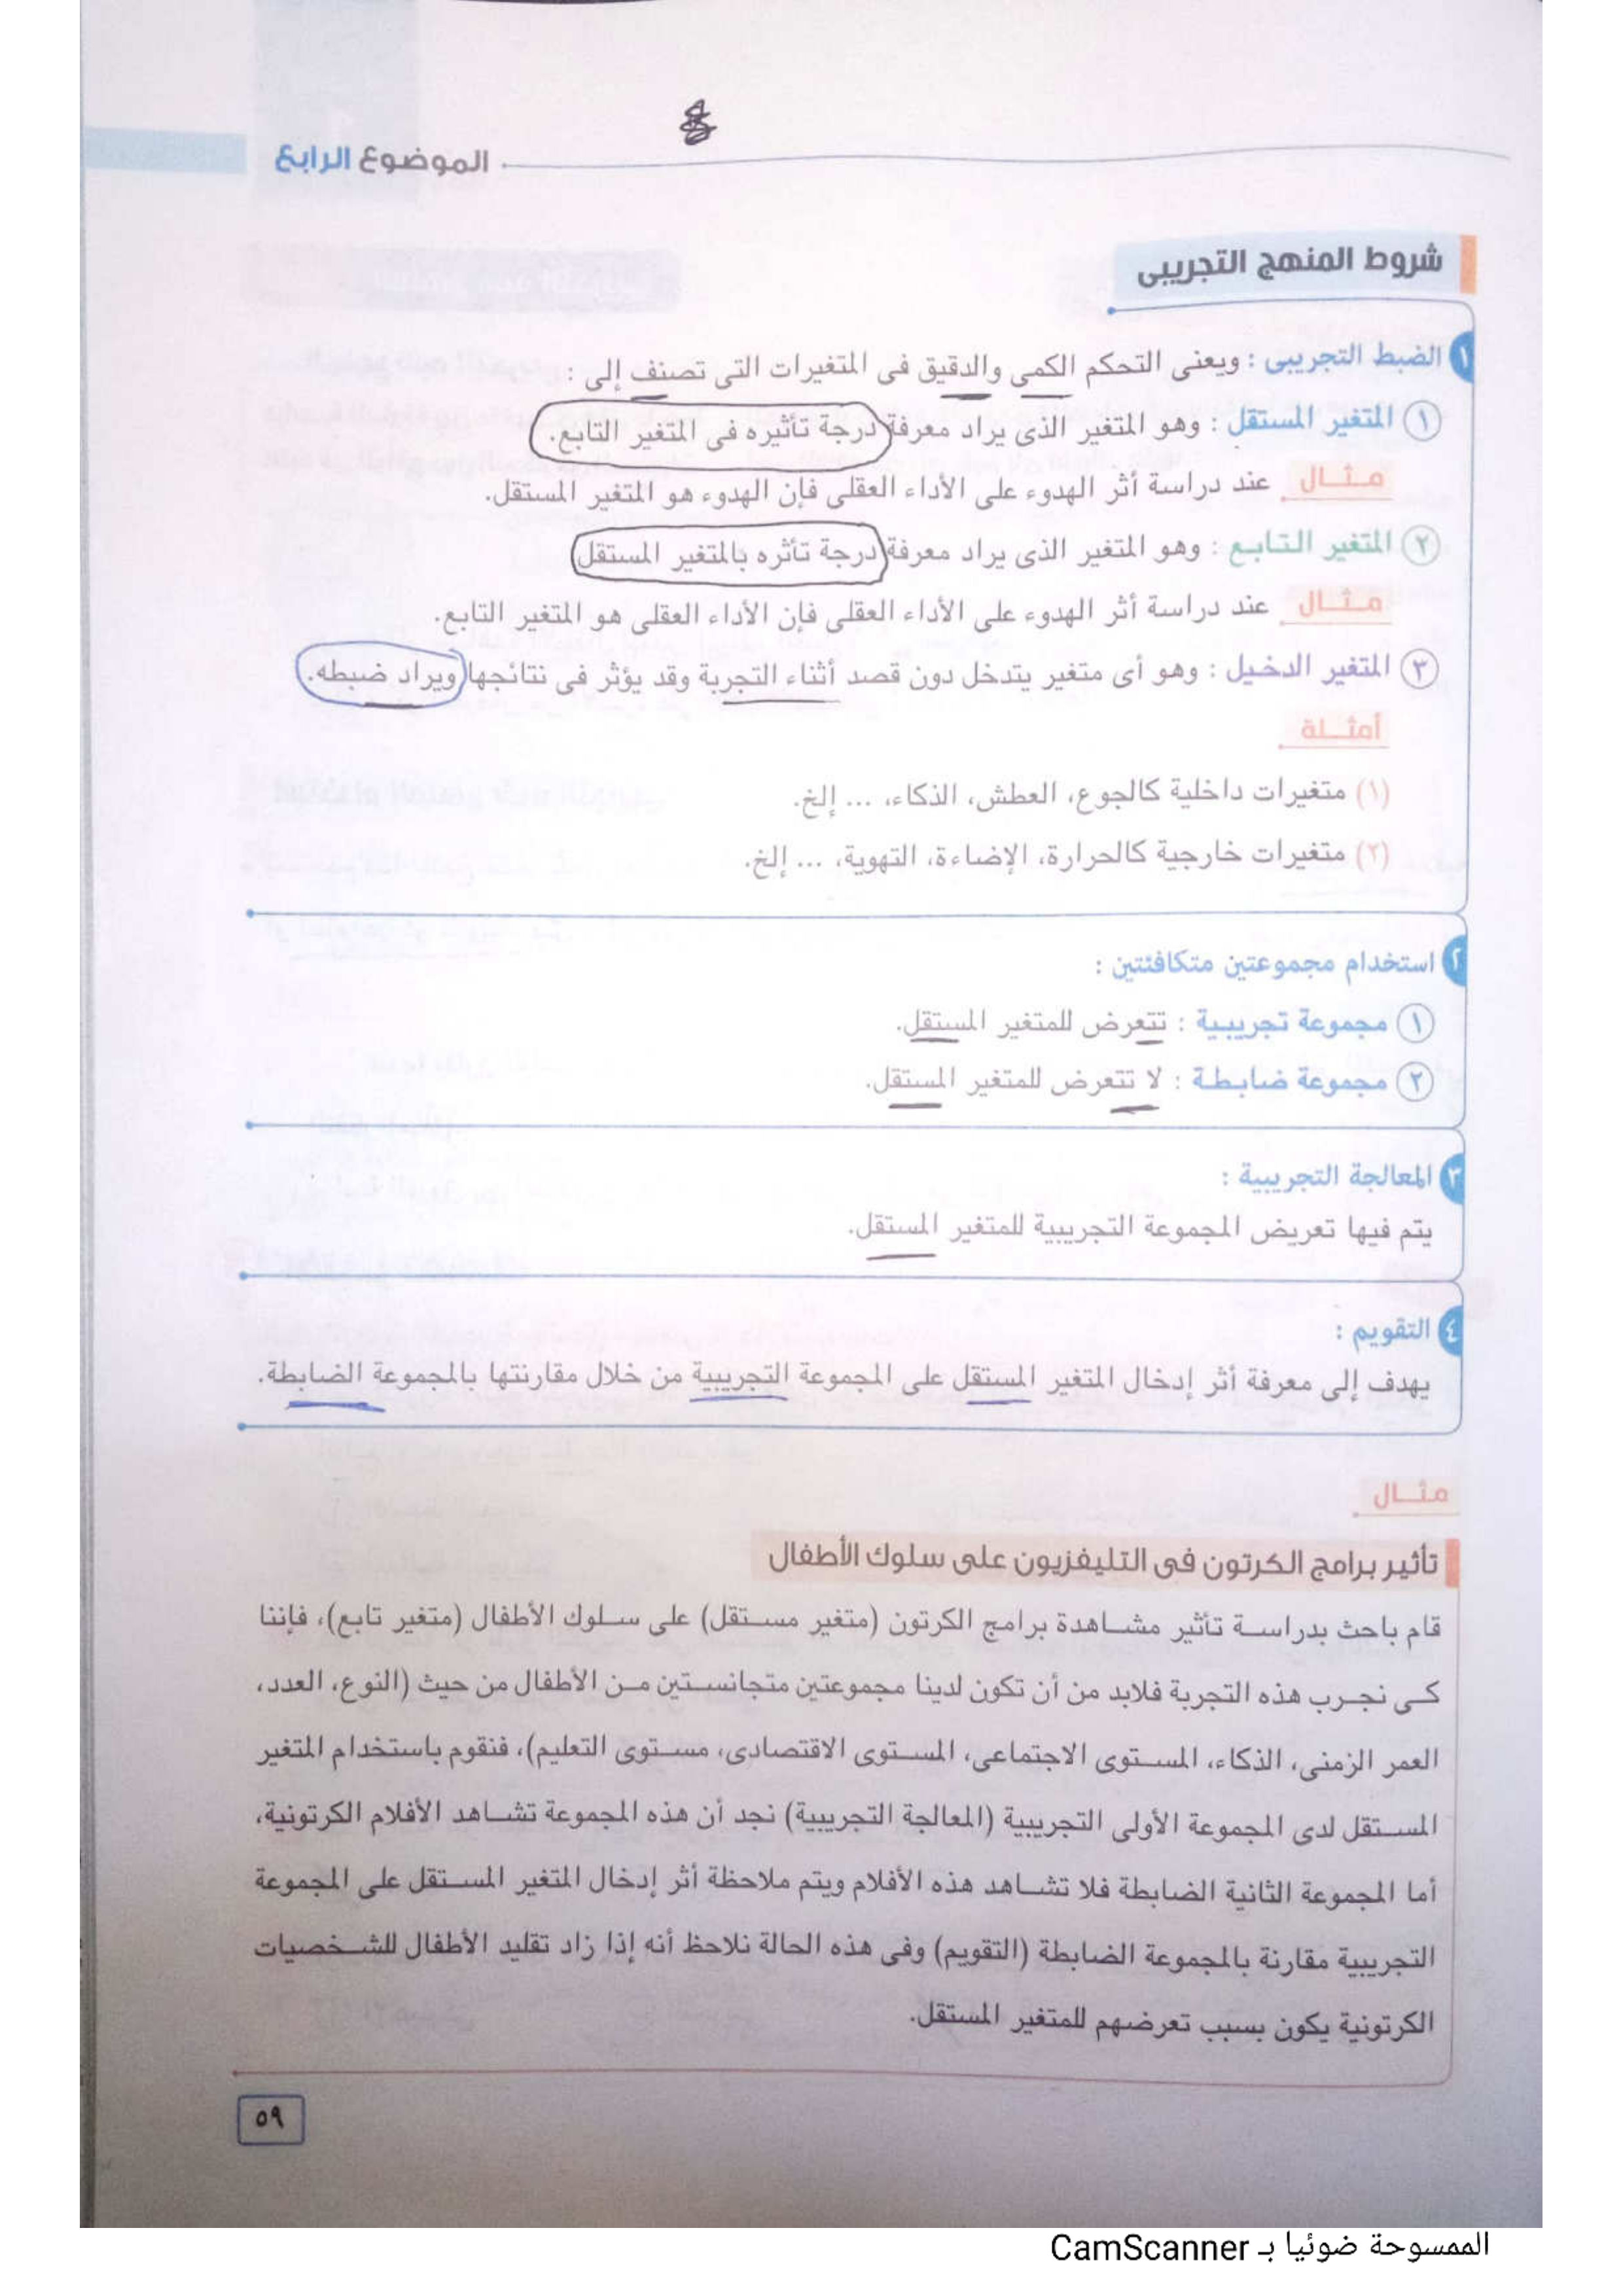 الموضوع الرابع
شروط المنهج التجريبى
١ الضبط التجريبى : ويعنى التحكم الكمى والدقيق فى المتغيرات التى تصنف إلى :
١ المتغير المستقل : وهو المتغير الذى يراد معرفة درجة تأثيره فى المتغير التابع.
مثـال عند دراسة أثر الهدوء على الأداء العقلى فإن الهدوء هو المتغير المستقل.
٢ المتغير التابع : وهو المتغير الذى يراد معرفة درجة تأثره بالمتغير المستقل
مثـال عند دراسة أثر الهدوء على الأداء العقلى فإن الأداء العقلى هو المتغير التابع.
٣ المتغير الدخيل : وهو أى متغير يتدخل دون قصد أثناء التجربة وقد يؤثر فى نتائجها ويراد ضبطه.
أمثـلة
(١) متغيرات داخلية كالجوع، العطش، الذكاء، ... إلخ.
(٢) متغيرات خارجية كالحرارة، الإضاءة، التهوية، ... إلخ.
٢ استخدام مجموعتين متكافئتين :
١ مجموعة تجريبية : تتعرض للمتغير المستقل.
٢ مجموعة ضابطة : لا تتعرض للمتغير المستقل.
٣ المعالجة التجريبية :
يتم فيها تعريض المجموعة التجريبية للمتغير المستقل.
٤ التقويم :
يهدف إلى معرفة أثر إدخال المتغير المستقل على المجموعة التجريبية من خلال مقارنتها بالمجموعة الضابطة.
مثـال
تأثير برامج الكرتون فى التليفزيون على سلوك الأطفال
قام باحث بدراسة تأثير مشاهدة برامج الكرتون (متغير مستقل) على سلوك الأطفال (متغير تابع)، فإننا
كى نجرب هذه التجربة فلابد من أن تكون لدينا مجموعتين متجانستين من الأطفال من حيث (النوع، العدد،
العمر الزمنى، الذكاء، المستوى الاجتماعى، المستوى الاقتصادى، مستوى التعليم)، فنقوم باستخدام المتغير
المستقل لدى المجموعة الأولى التجريبية (المعالجة التجريبية) نجد أن هذه المجموعة تشاهد الأفلام الكرتونية،
أما المجموعة الثانية الضابطة فلا تشاهد هذه الأفلام ويتم ملاحظة أثر إدخال المتغير المستقل على المجموعة
التجريبية مقارنة بالمجموعة الضابطة (التقويم) وفى هذه الحالة نلاحظ أنه إذا زاد تقليد الأطفال للشخصيات
الكرتونية يكون بسبب تعرضهم للمتغير المستقل.
٥٩
الممسوحة ضوئيا بـ CamScanner